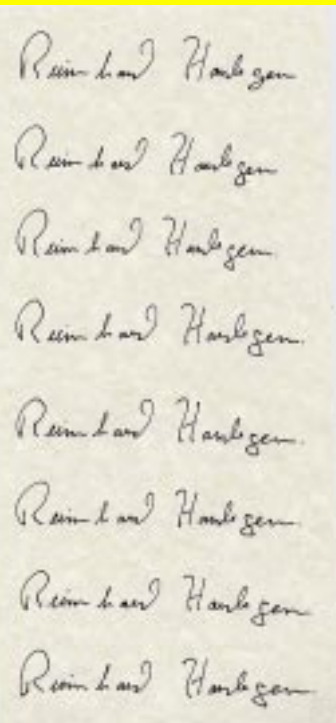 Reinhard Hanlegen
Reinhard Hanlegen
Reinhard Hanlegen
Reinhard Hanlegen
Reinhard Hanlegen
Reinhard Hanlegen
Reinhard Hanlegen
Reinhard Hanlegen